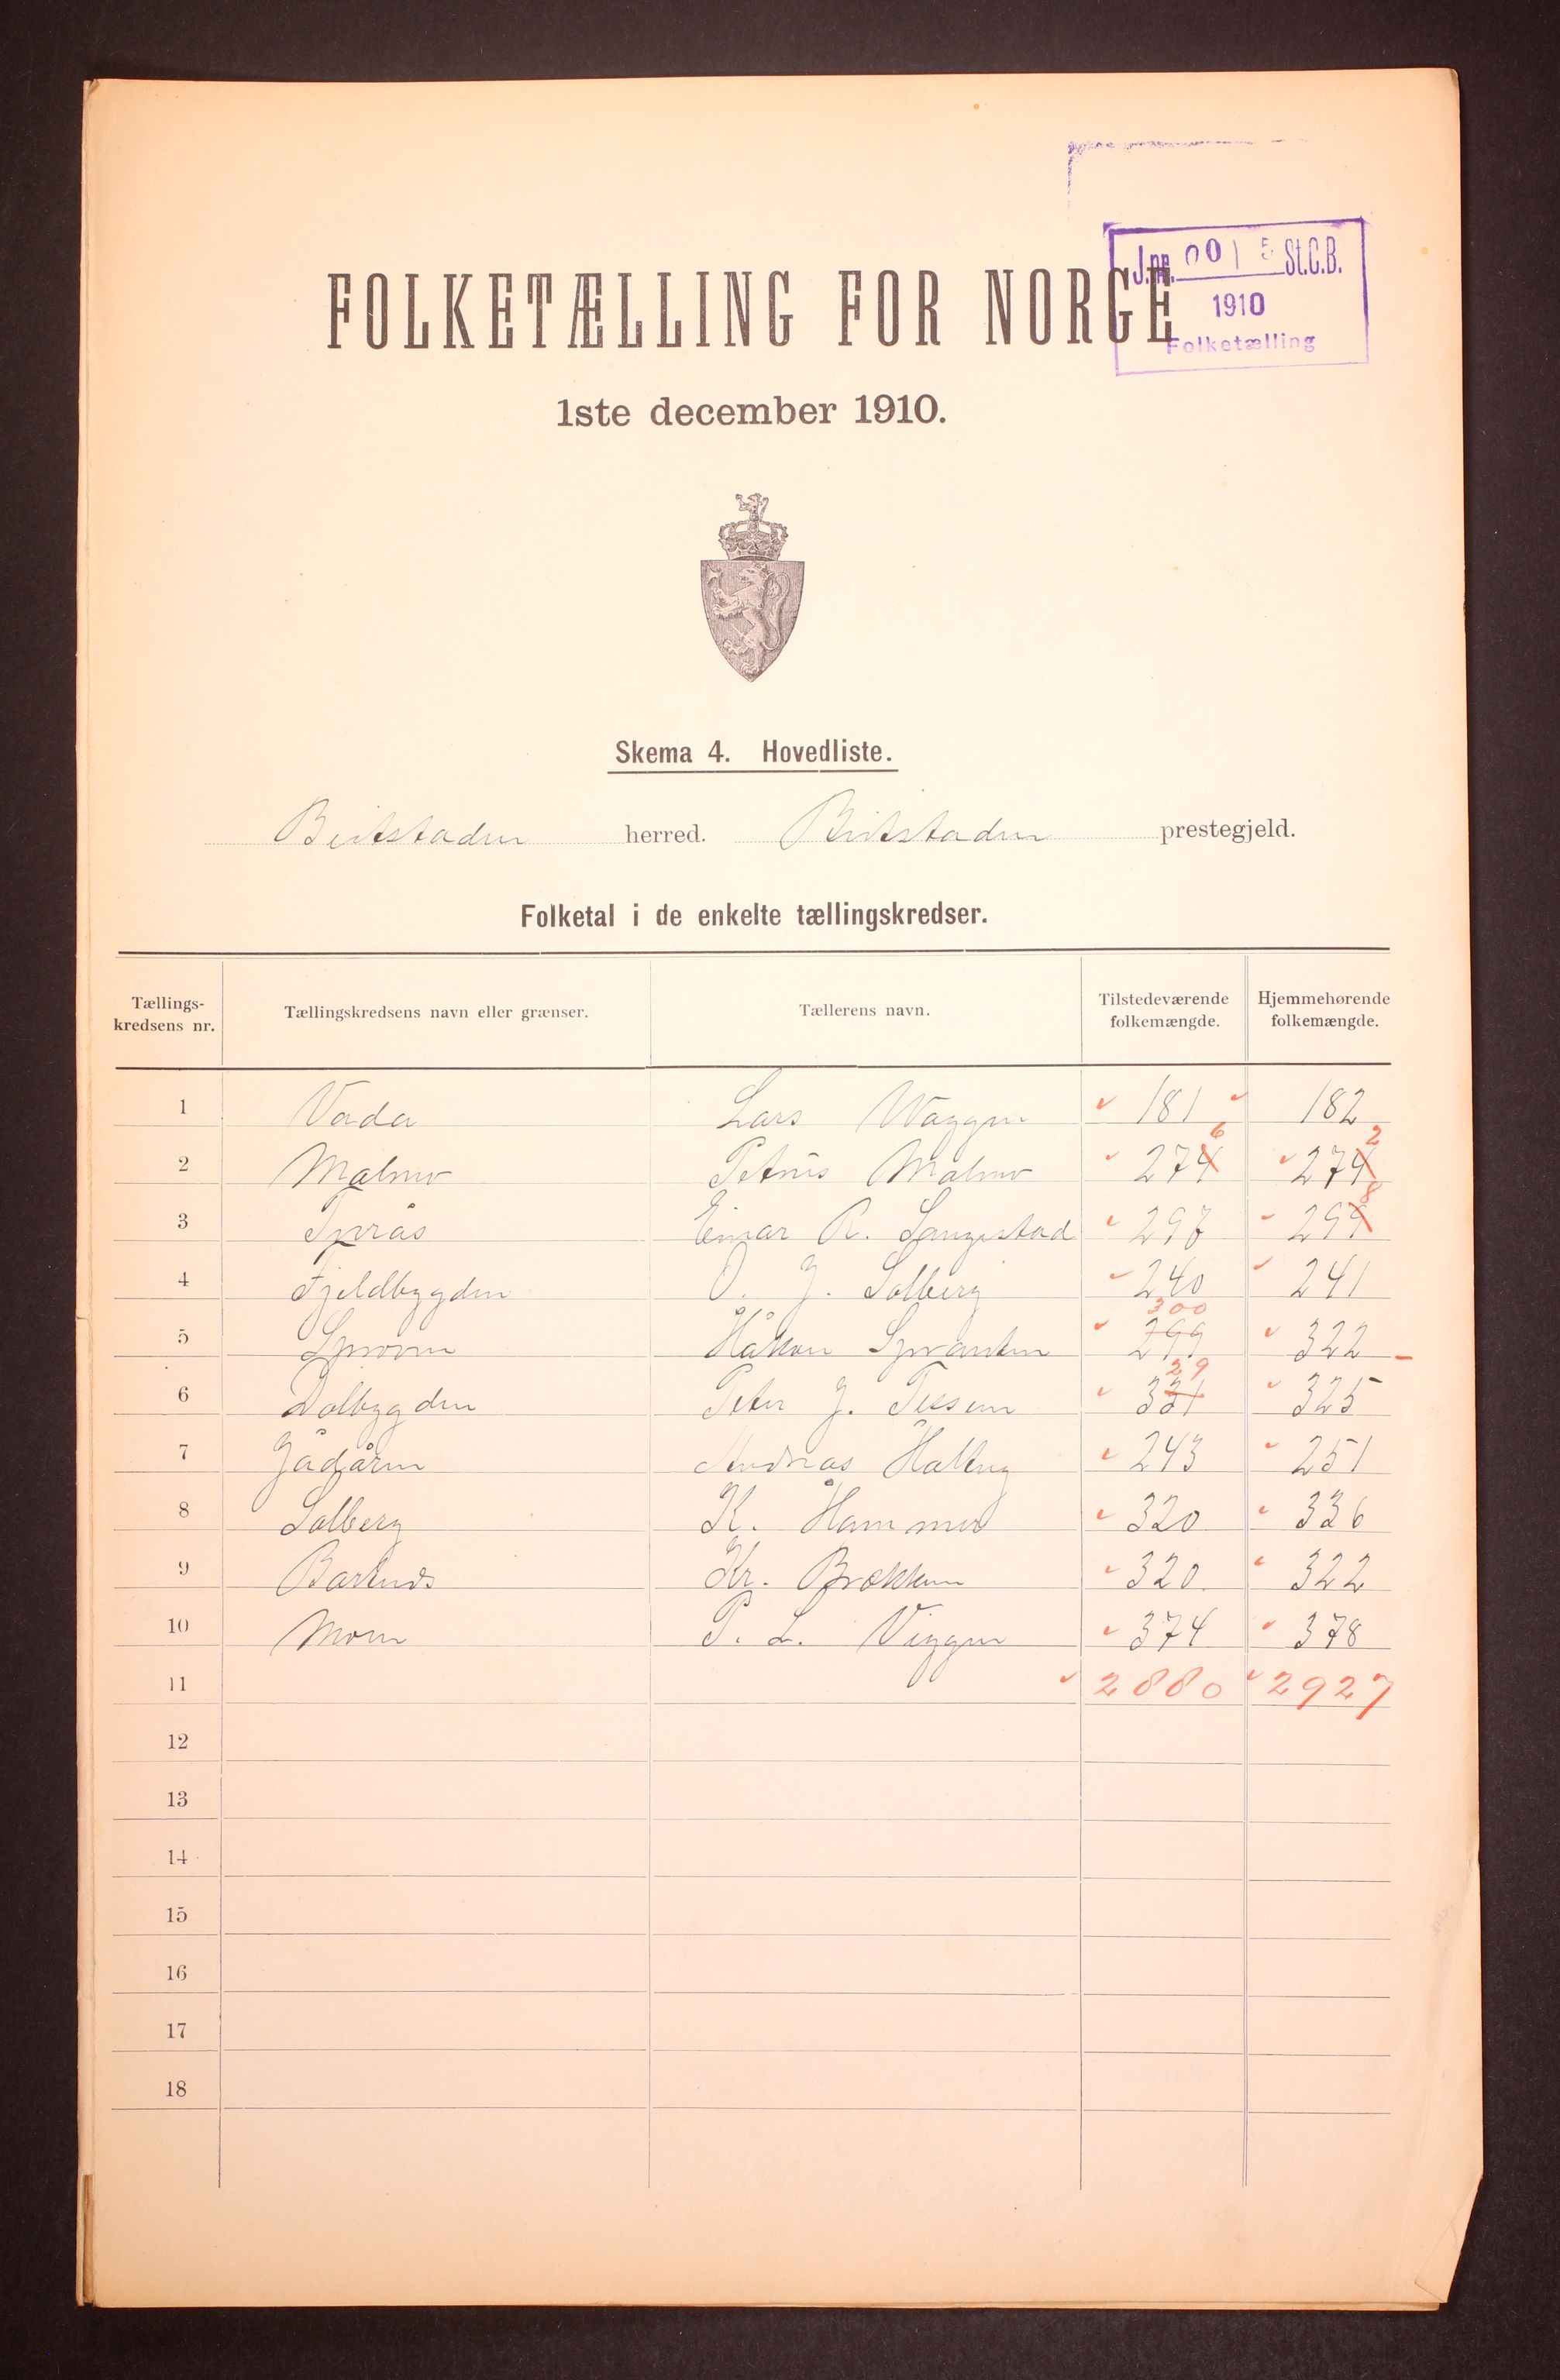 J.nr. 0015 St.C.B.
1910
Folketælling
FOLKETÆLLING FOR NORGE
1ste december 1910.
Skema 4. Hovedliste.
Beitstaden herred. Beitstaden prestegjeld.
Folketal i de enkelte tællingskredser.
Tællings-kredsens nr. Tællingskredsens navn eller grænser. Tællerens navn. Tilstedeværende folkemængde. Hjemmehørende folkemængde.
1 Vada Lars 181 182
2 Malmo Petrus Malmo 274 6 274 2
3 Einar R. 297 299 8
4 Fjeldbygden O. J. Solberg 240 241
5 Håkon 299 300 322
6 Dalbygden Peter J. Tessem 331 29 325
7 Jådåren Andreas 243 251
8 Solberg K. Hammer 320 336
9 Bartnes Kr. Brækken 320 322
10 Moen P. L. Viggen 374 378
11 2880 2927
12
13
14
15
16
17
18